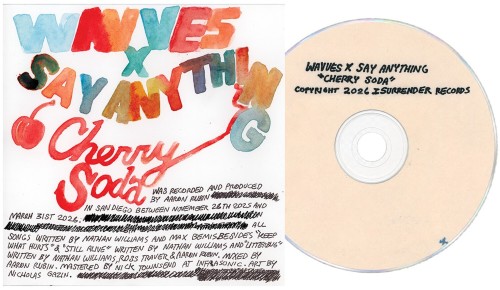 WAVVES
X
SAY ANYTHING
Cherry
Soda
WAS RECORDED AND PRODUCED
BY AARON RUBIN
IN SAN DIEGO BETWEEN NOVEMBER 26TH 2025 AND
MARCH 31ST 2026. ALL
SONGS WRITTEN BY NATHAN WILLIAMS AND MAX BEMIS. BESIDES "KEEP
WHAT HURTS" & "STILL ALIVE" WRITTEN BY NATHAN WILLIAMS AND "LITTERBUG"
WRITTEN BY NATHAN WILLIAMS, ROSS TRAVER & AARON RUBIN. MIXED BY
AARON RUBIN. MASTERED BY NICK TOWNSEND AT INFRASONIC. ART BY
NICHOLAS GAZIN.
WAVVES X SAY ANYTHING
"CHERRY SODA"
COPYRIGHT 2026 ISURRENDER RECORDS